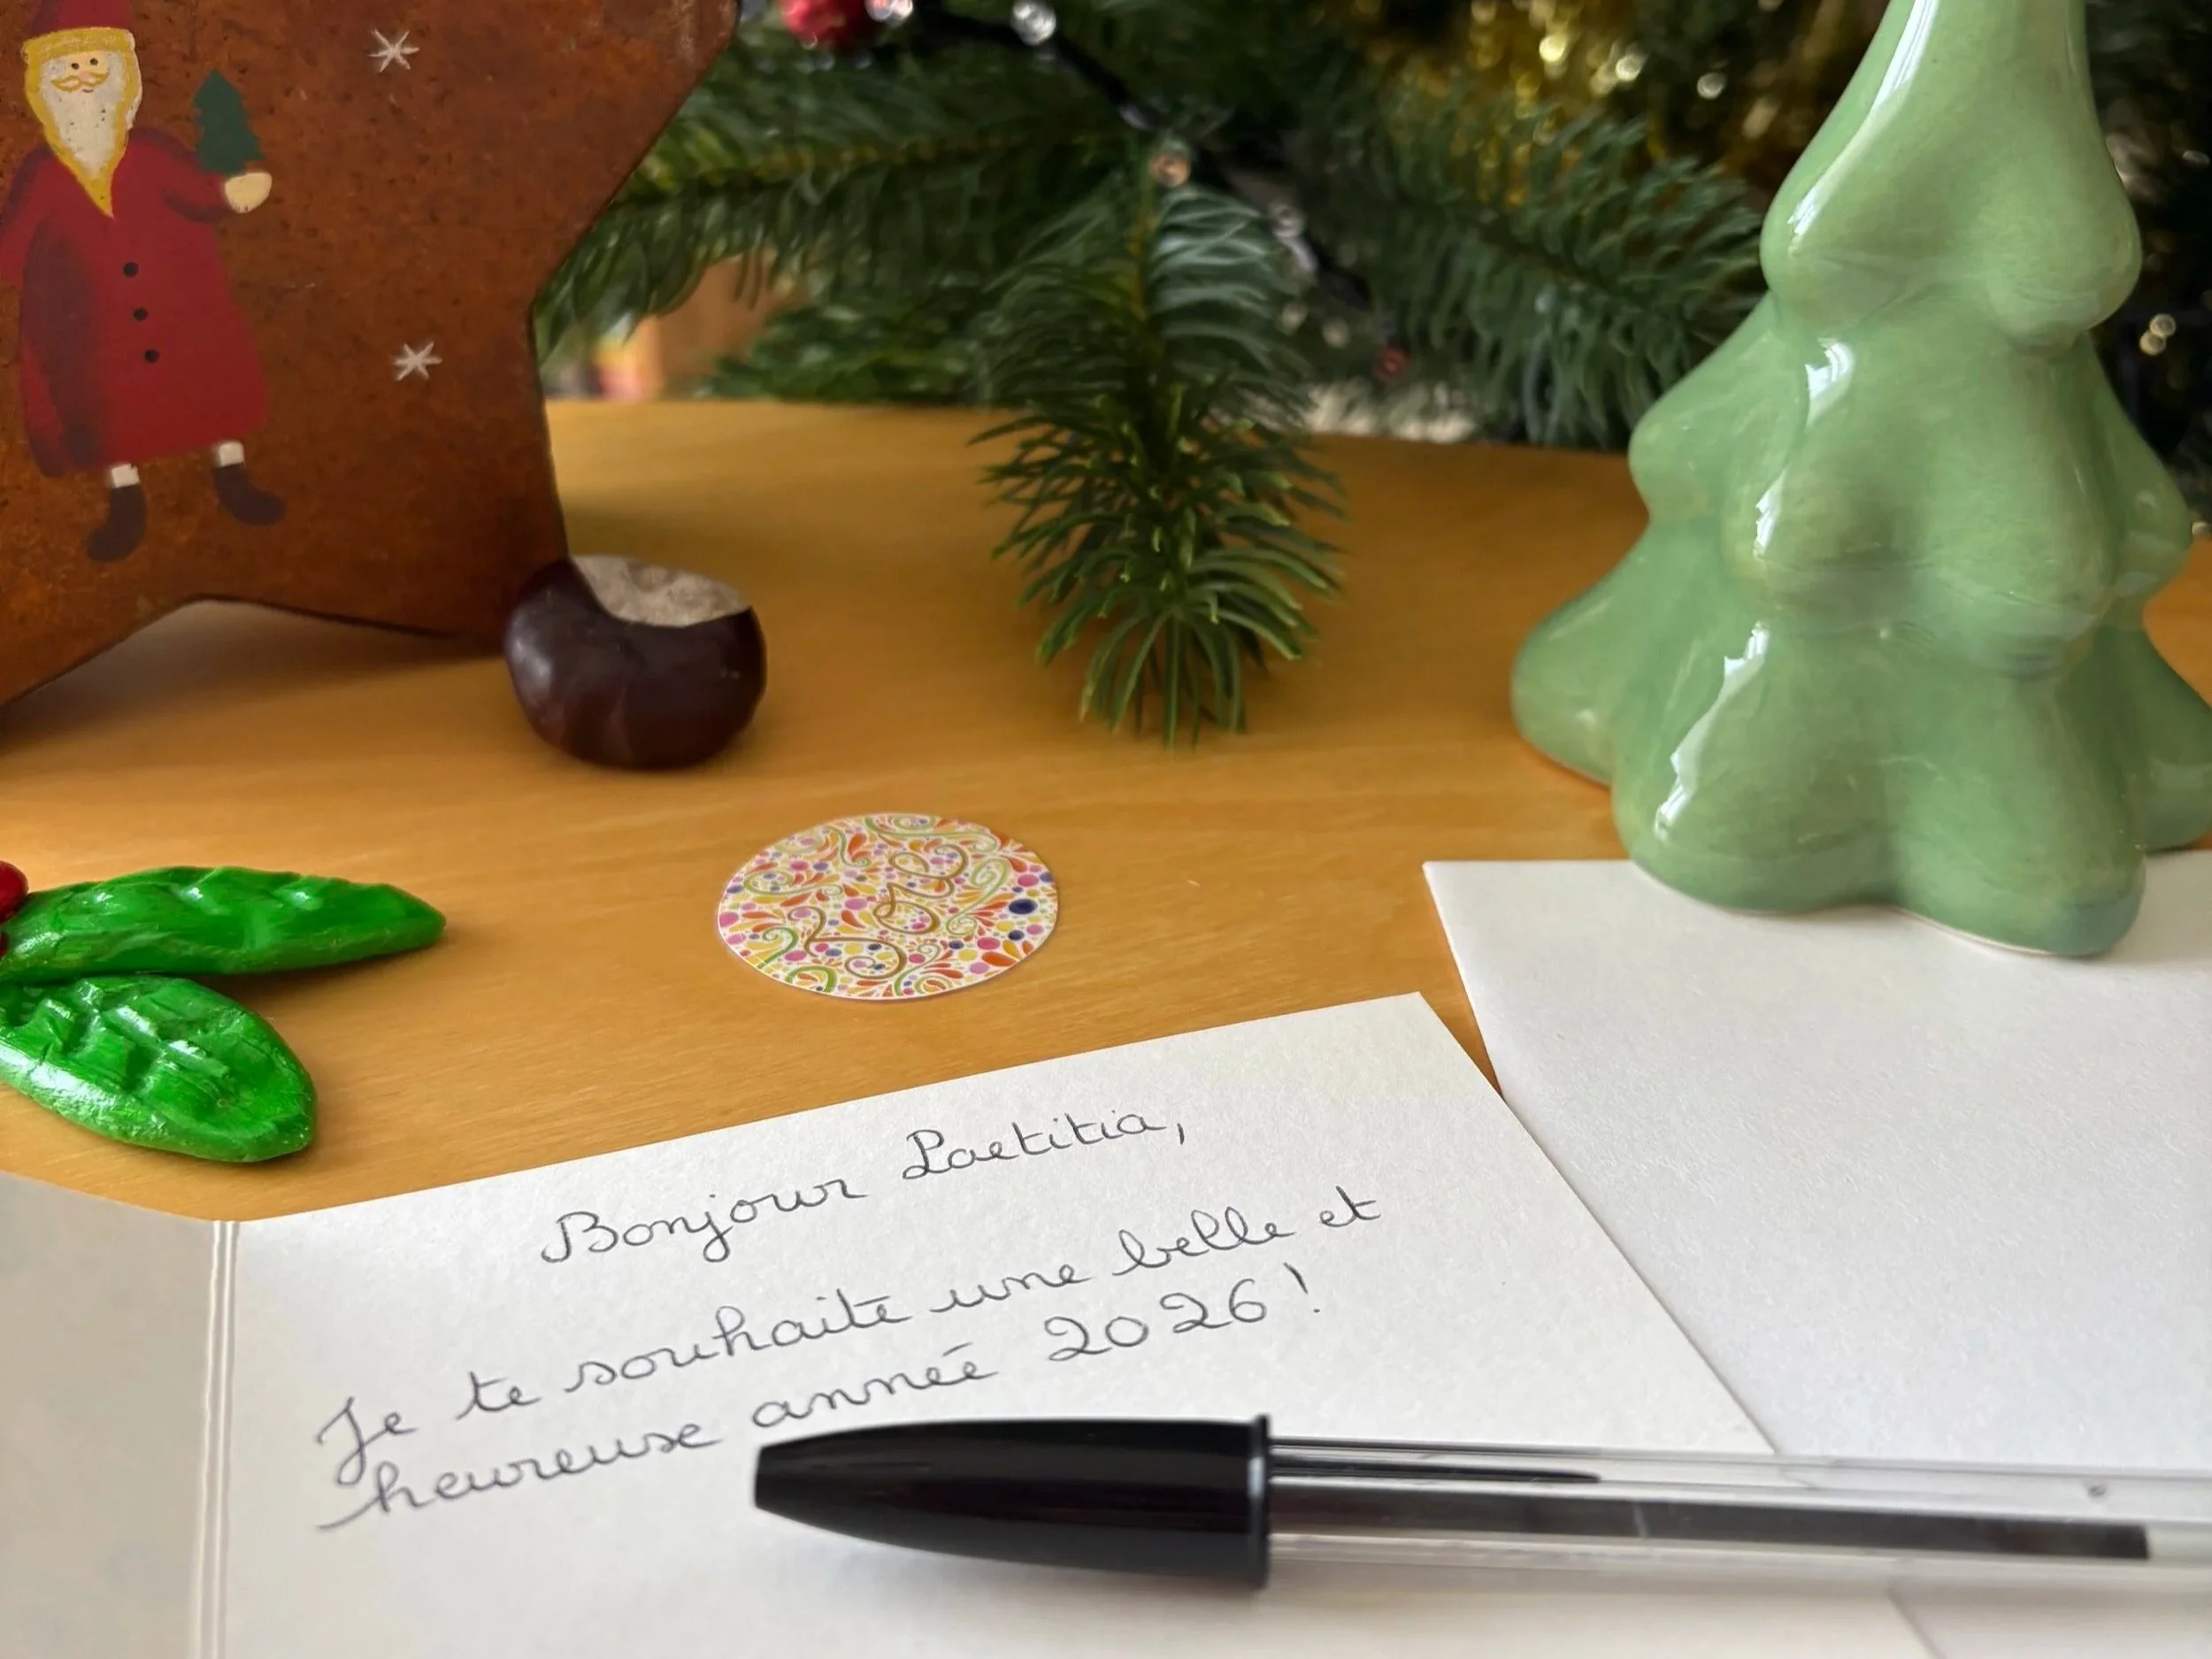 Bonjour Laetitia,
Je te souhaite une belle et
heureuse année 2026 !